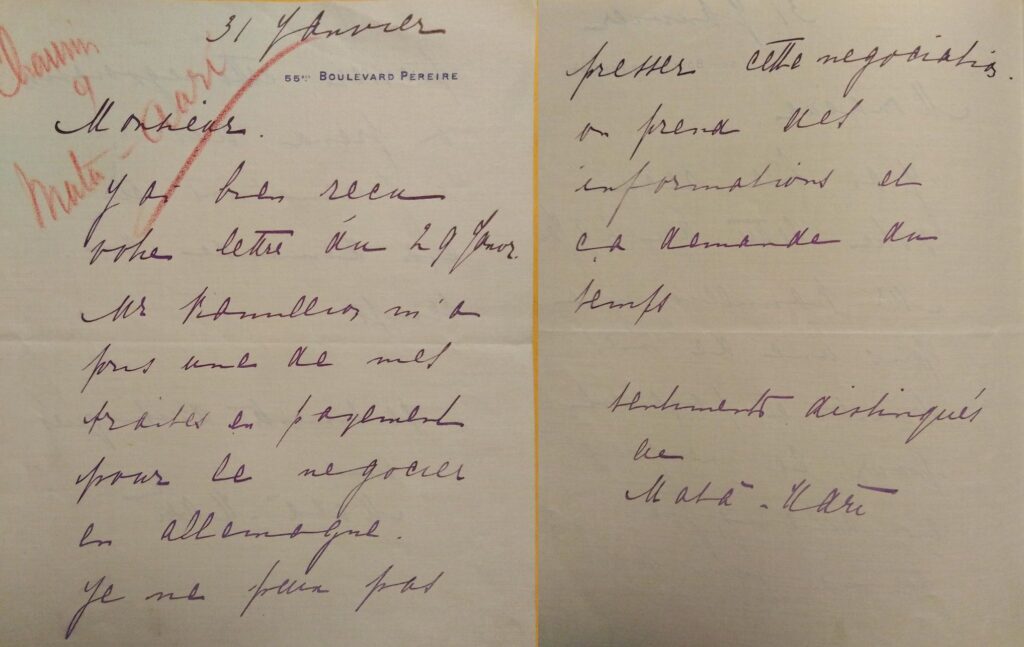 31 Janvier
55bis Boulevard Pereire
Mata-Hari
Monsieur.
J ai bien recu
votre lettre du 29 Janv.
Mr m'a
pris une de mes
traites en payement
pour le negocier
en allemagne.
Je ne peux pas
presser cette negociation.
on prend des
informations et
ça demande du
temps
sentiments distingués
de
Mata-Hari